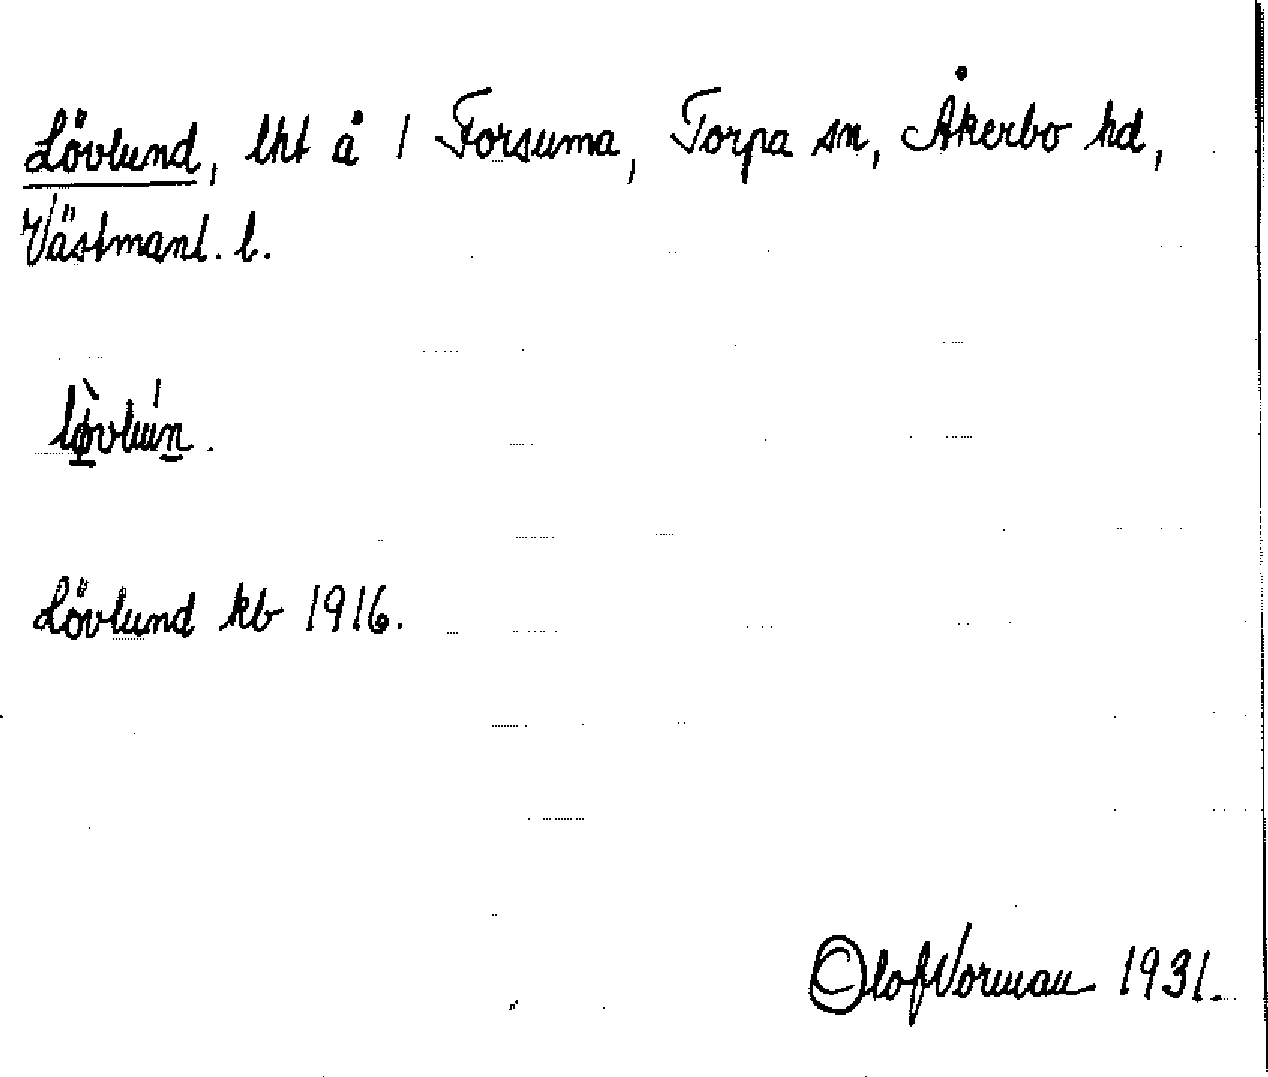 Lövlund, lht å 1 Forsuma, Torpa sn, Åkerbo hd,
Västmanl. l.
Lövlund kb 1916.
Olof Norman 1931.